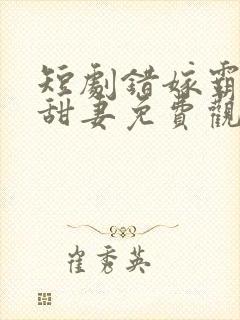 短劇錯嫁霸
甜妻免費觀
崔秀英